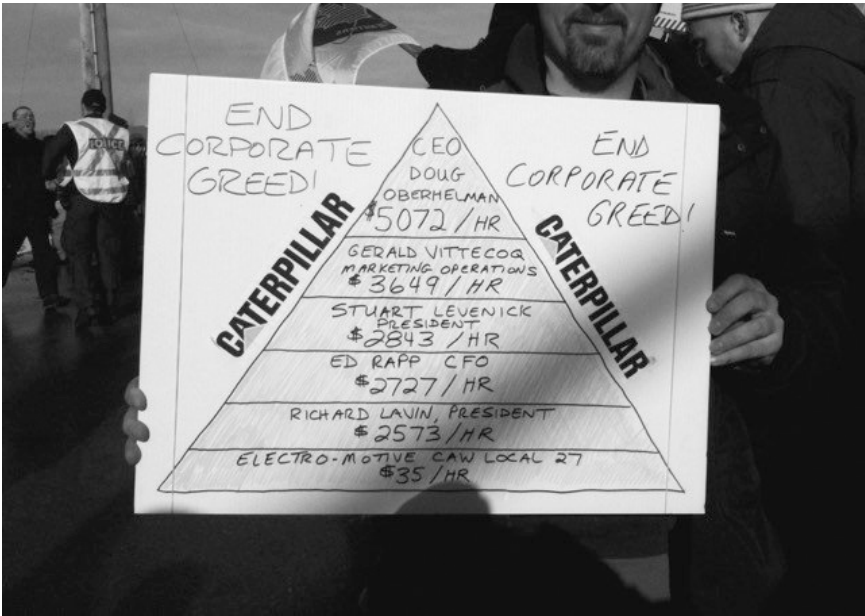 END
CORPORATE
GREED!
CATERPILLAR
CEO
DOUG
OBERHELMAN
$5072/HR
GERALD VITTECOQ
MARKETING OPERATIONS
$3649/HR
STUART LEVENICK
PRESIDENT
$2843/HR
ED RAPP CFO
$2727/HR
RICHARD LAVIN, PRESIDENT
$2573/HR
ELECTRO-MOTIVE CAW LOCAL 27
$35/HR
END
CORPORATE
GREED!
CATERPILLAR
POLICE